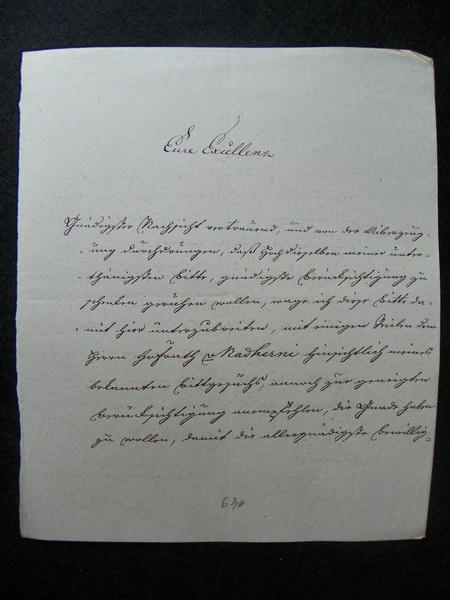 Eure Excellenz
Gnädigster Nachsicht vertrauend, und von der Uiberzeug-
ung durchdrungen, daß Hochdieselben meiner unter-
thänigsten Bitte, gnädigste Berücksichtigung zu
schenken geruhen wollen, wage ich diese Bitte da-
mit hier unterzubreiten, mit einigen Zeilen dem
Herrn Hofrath v Nadherni hinsichtlich meines
bekannten Bittgesuchs, annoch zur geneigten
Berücksichtigung anempfehlen, die Gnade haben
zu wollen, damit die allergnädigste Bewillig-